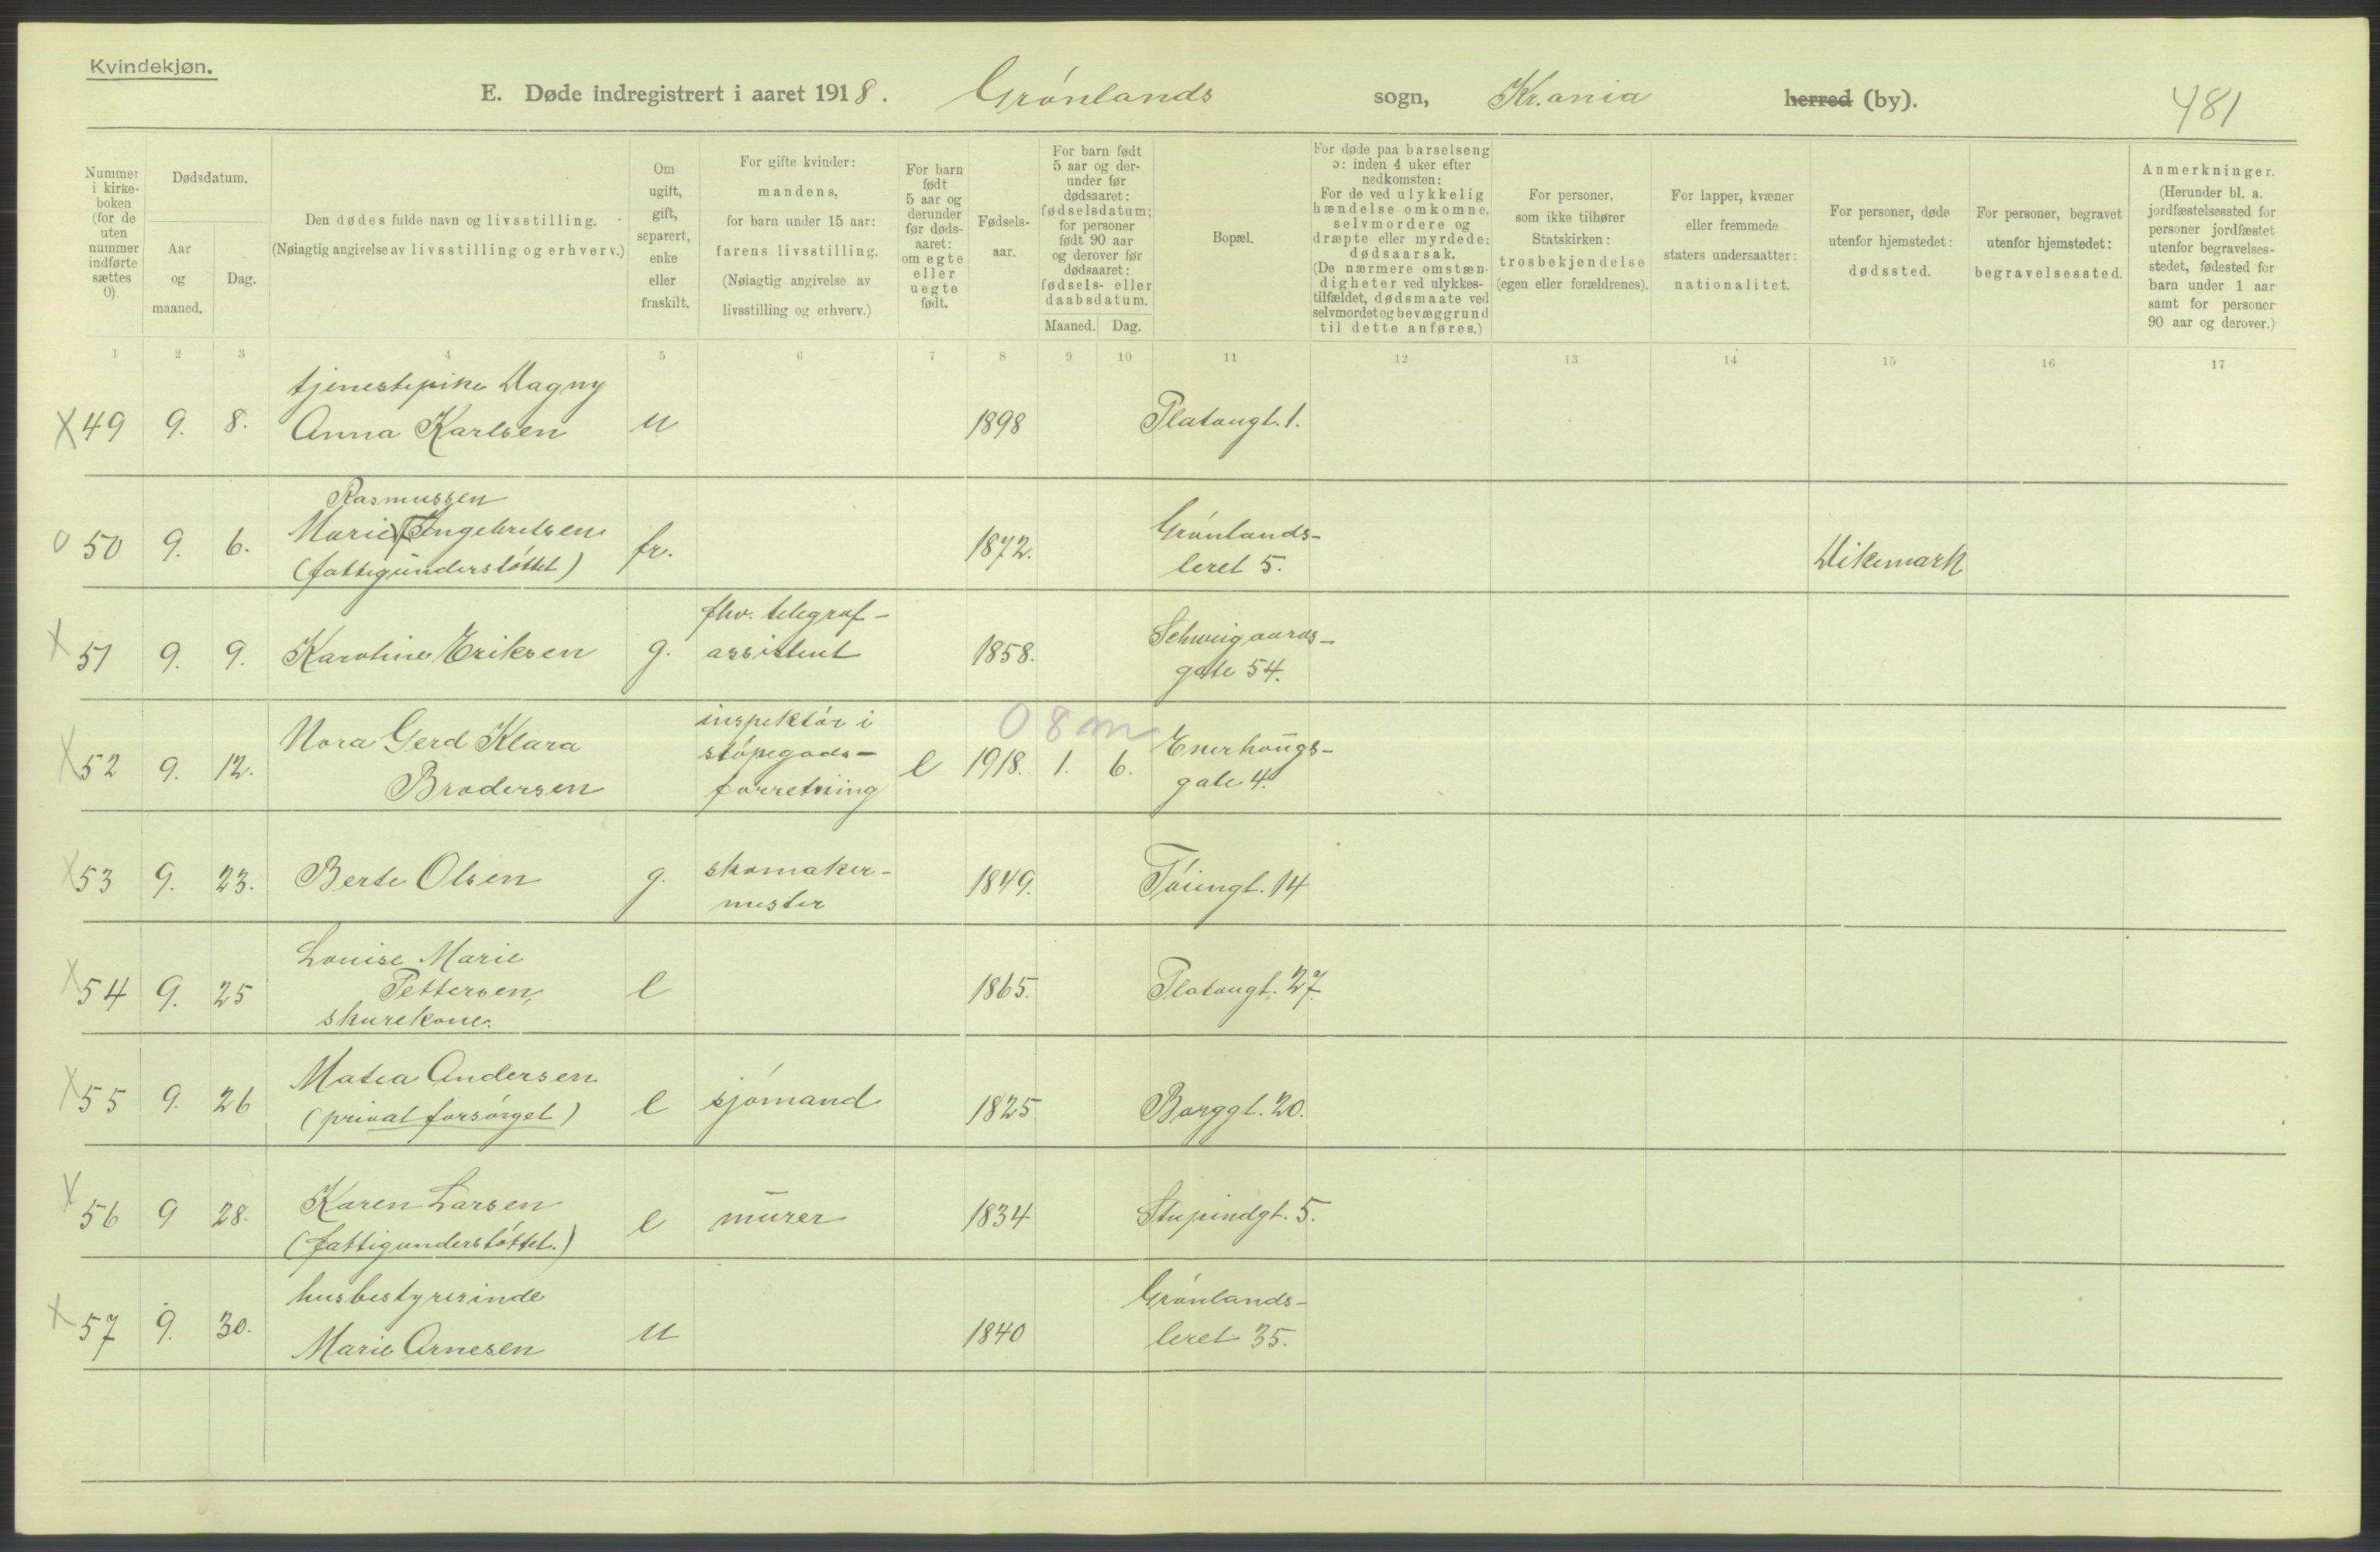 Kvindekjøn.
E. Døde indregistrert i aaret 1918. Grønlands sogn, Kr.ania herred (by).
481
Nummer i kirke-boken (for de uten nummer indførte sættes 0).
Dødsdatum.
Aar og maaned.
Dag.
Den dødes fulde navn og livsstilling.
(Nøiagtig angivelse av livsstilling og erhverv.)
Om ugift, gift, separert, enke eller fraskilt.
For gifte kvinder: mandens, for barn under 15 aar: farens livsstilling. (Nøiagtig angivelse av livsstilling og erhverv.)
For barn født 5 aar og derunder før døds-aaret: om egte eller uegte født.
Fødsels-aar.
For barn født 5 aar og der-under før dødsaaret: fødselsdatum; for personer født 90 aar og derover før dødsaaret: fødsels- eller daabsdatum.
Maaned. Dag.
Bopæl.
For døde paa barselseng ɔ: inden 4 uker efter nedkomsten: For de ved ulykkelig hændelse omkomne, selvmordere og dræpte eller myrdede: dødsaarsak. (De nærmere omstæn-digheter ved ulykkes-tilfældet, dødsmaate ved selvmordet og bevæggrund til dette anføres.)
For personer, som ikke tilhører Statskirken: trosbekjendelse (egen eller forældrenes).
For lapper, kvæner eller fremmede staters undersaatter: nationalitet.
For personer, døde utenfor hjemstedet: dødssted.
For personer, begravet utenfor hjemstedet: begravelsessted.
Anmerkninger. (Herunder bl. a. jordfæstelsessted for personer jordfæstet utenfor begravelses-stedet, fødested for barn under 1 aar samt for personer 90 aar og derover.)
1 2 3 4 5 6 7 8 9 10 11 12 13 14 15 16 17
tjenestepike Dagny
X 49 9. 8. Anna Karlsen u 1898 Platougt. 1.
Rasmussen
0 50 9. 6. Marie Ingebretsen fr. 1872. Grønlands-
(fattigunderstøttet) leret 5. Dikemark
fhv. telegraf-
X 51 9. 9. Karoline Eriksen g. assistent 1858. Schweigaards-
gate 54.
inspektør i 0 8 m
X 52 9. 12. Nora Gerd Klara støpegods- e 1918. 1. 6. Enerhougs-
Brodersen forretning gate 4.
X 53 9. 23. Berte Olsen g. skomaker- 1849. Tøiengt. 14
mester
Louise Marie
X 54 9. 25 Pettersen, e 1865. Platougt. 27.
skurekone.
X 55 9. 26 Matea Andersen e sjømand 1825 Borggt. 20.
(privat forsørget)
X 56 9 28. Karen Larsen e murer 1834 Stupindgt. 5.
(fattigunderstøttet.)
husbestyrerinde Grønlands-
X 57 9. 30. Marie Arnesen u 1840 leret 35.